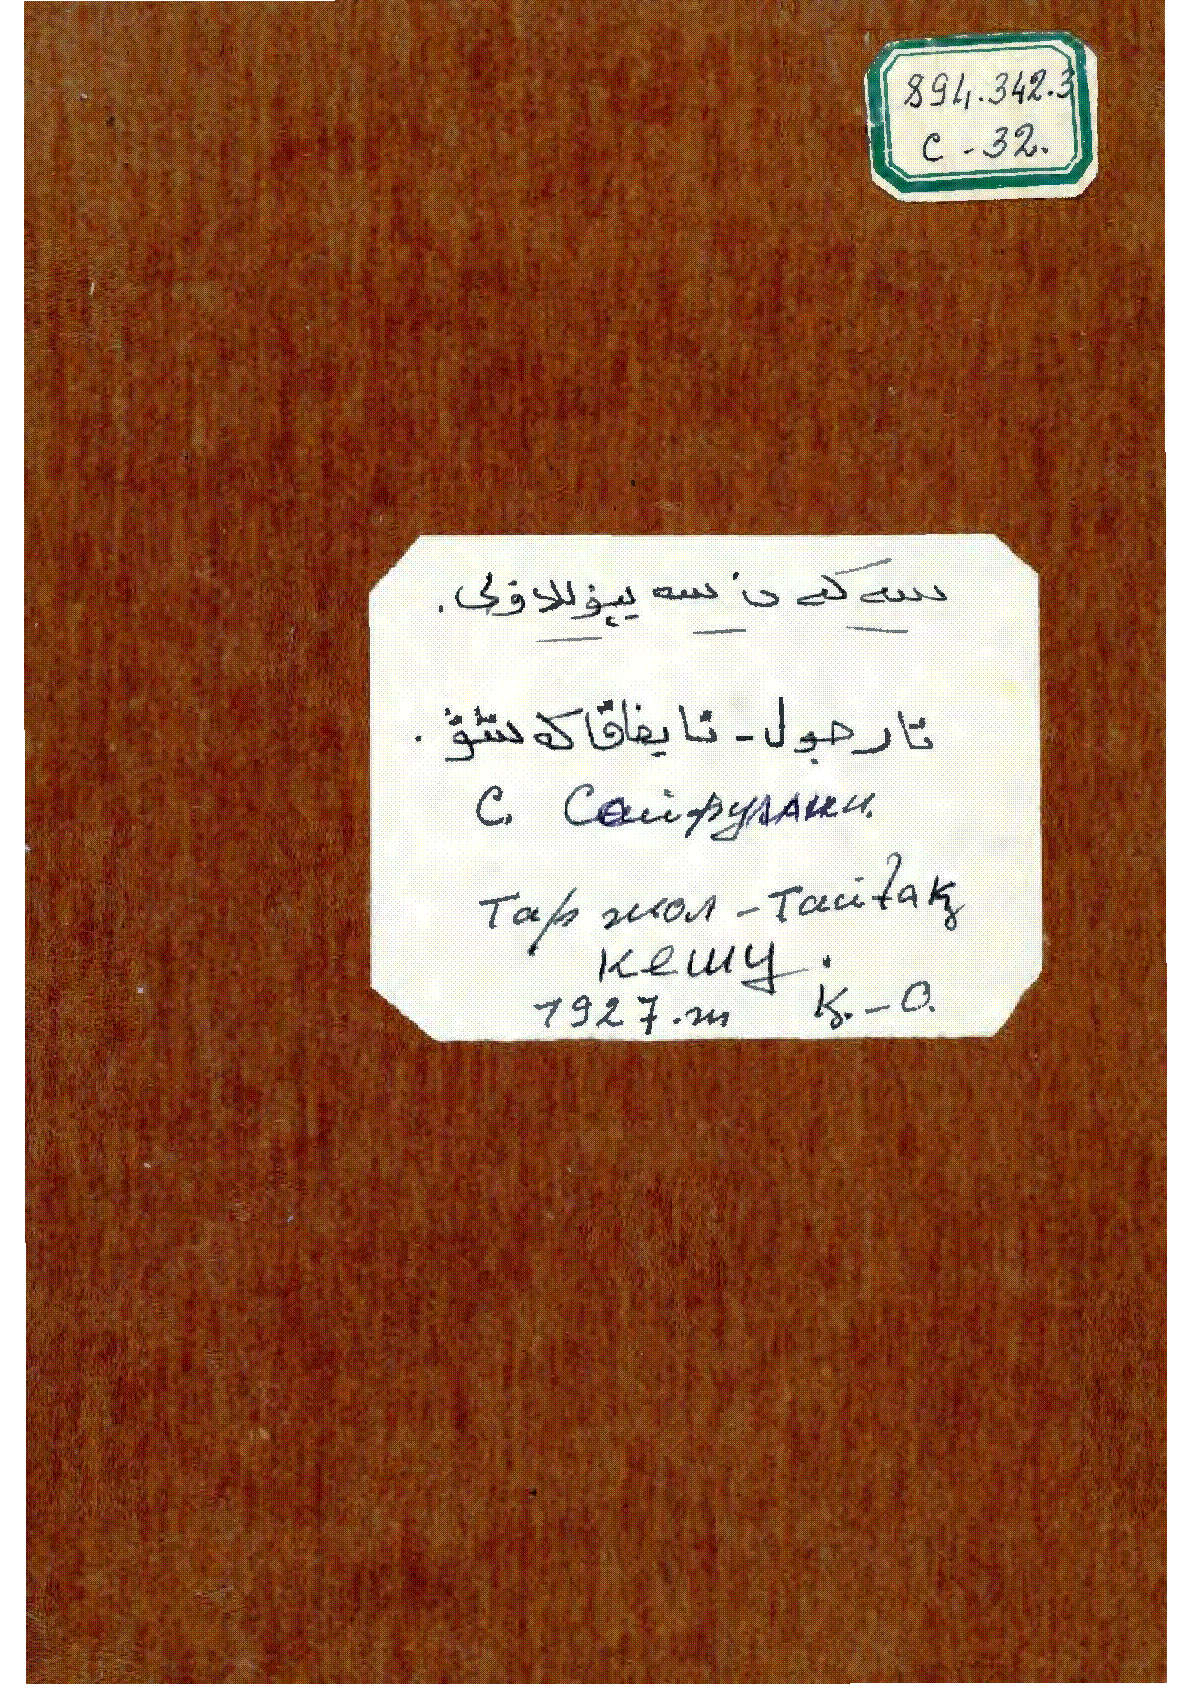 894.342.3
С-32.
سه كه ن سه يفوللا ۇلى.
تار جول - تايغاق كه شۋ.
С. Сайфуллин.
Тар жол - Тайғақ
кешу.
1927.ж Қ.-О.